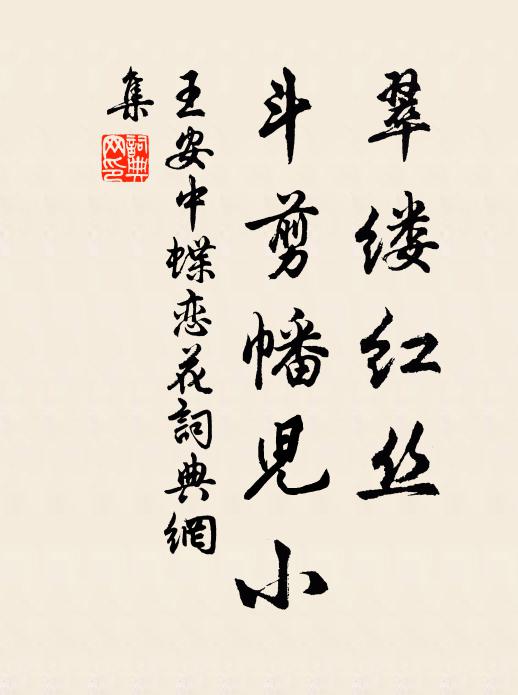 翠缕红丝
斗剪幡児小
王安中蝶恋花詞典網
集
詞典网印